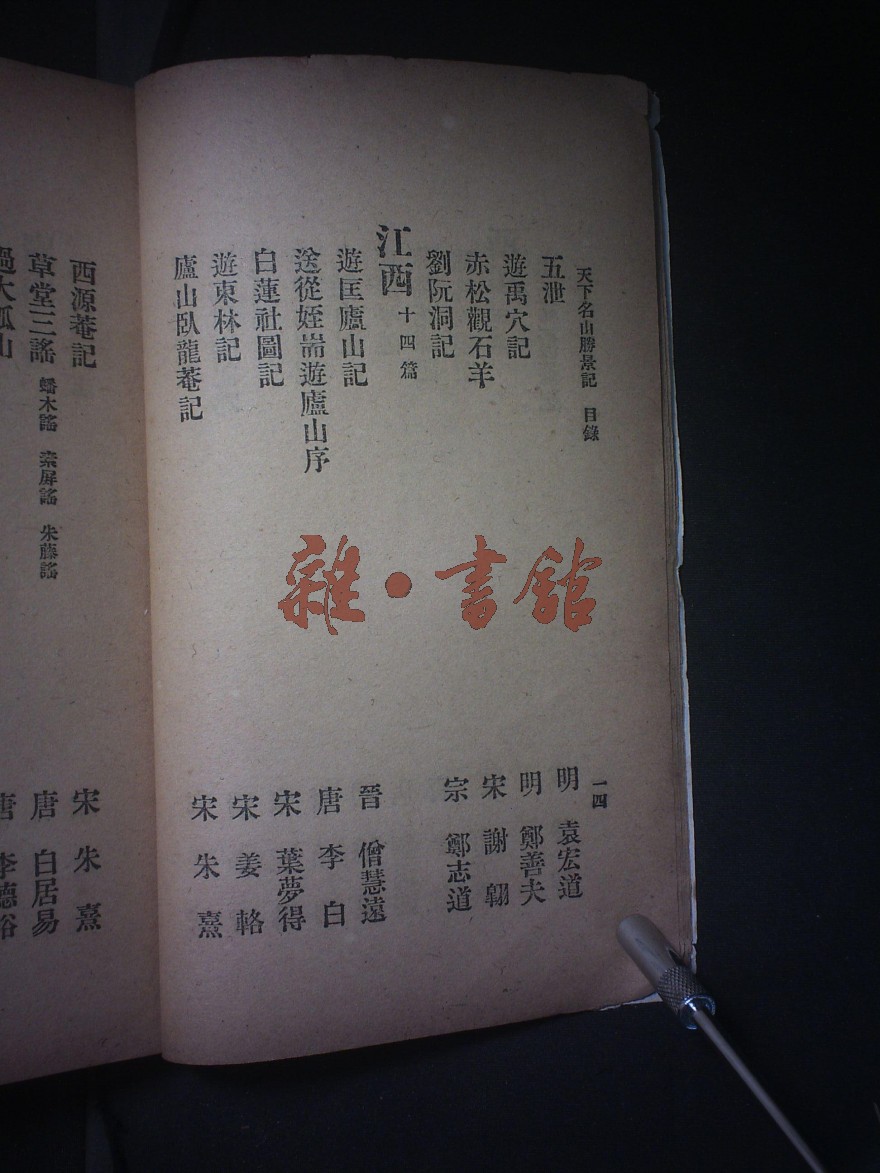 天下名山勝景記 目錄 一四
五泄 明 袁宏道
遊禹穴記 明 鄭善夫
赤松觀石羊 宋 謝翶
劉阮洞記 宗 鄭志道
江西 十四篇
遊匡廬山記 晉 僧慧遠
送從姪耑遊廬山序 唐 李白
白蓮社圖記 宋 葉夢得
遊東林記 宋 姜輅
廬山臥龍菴記 宋 朱熹
西源菴記 宋 朱熹
草堂三謠 蟠木謠 素屏謠 朱藤謠 唐 白居易
過大孤山 唐 李德裕
雜·書館